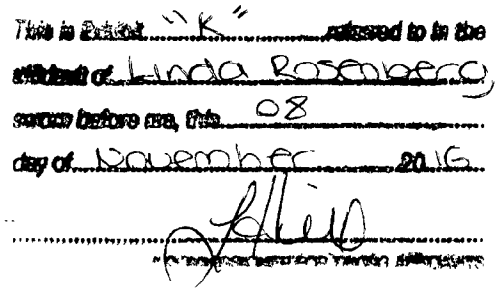 This is Exhibit "K" referred to in the
affidavit of Linda Rosenberg,
sworn before me, this 08
day of November 2016